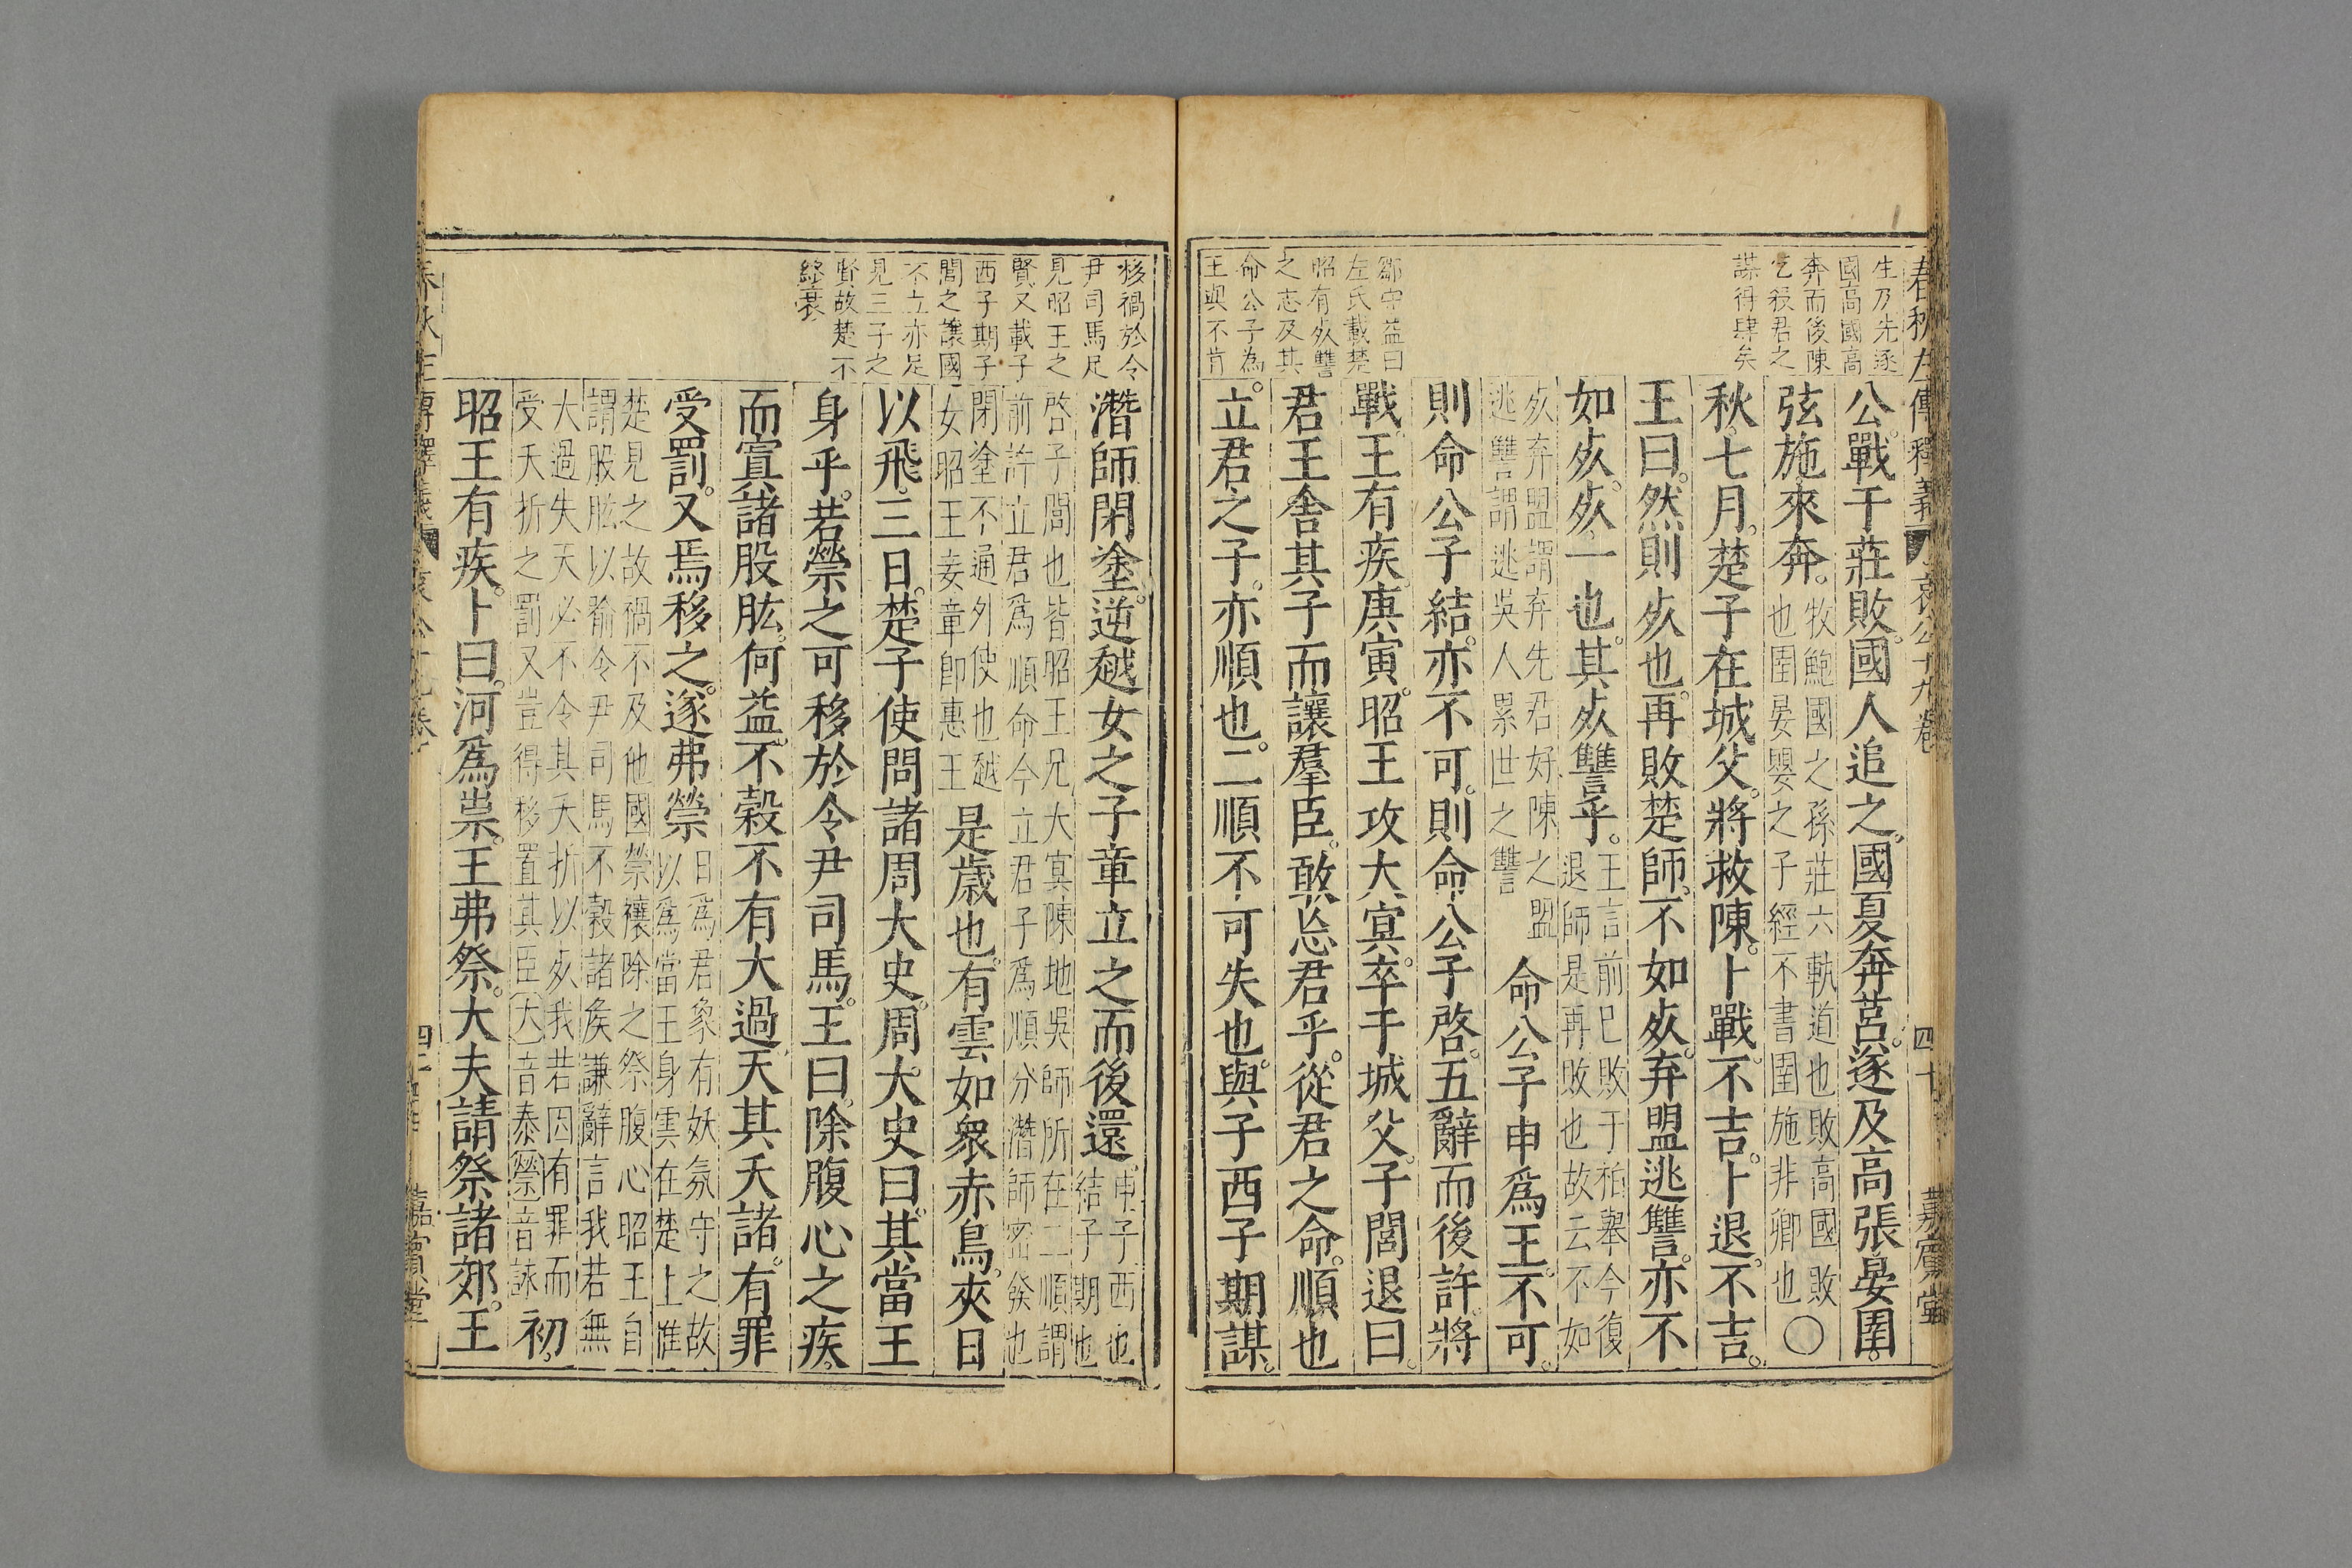 春秋左傳釋義 哀公十九卷 四十 嘉賓堂
生乃先逐
國高國高
奔而後陳
乞弑君之
謀得肆矣
鄒守益曰
左氏載楚
昭有死讐
之志及其
命公子為
王與不肯
公。戰于莊敗。國人追之。國夏奔莒。遂及高張晏圉。
弦施來奔。牧鮑國之孫莊六軌道也敗高國敗也圉晏嬰之子經不書圉施非卿也〇
秋。七月。楚子在城父。將救陳。卜戰。不吉。卜退。不吉。
王曰。然則死也。再敗楚師。不如死。弃盟逃讐。亦不
如死。死一也。其死讐乎。王言前巳敗于栢舉今復退師是再敗也故云不如
死弃盟謂弃先君好陳之盟逃讐謂逃吳人累世之讐命公子申爲王。不可。
則命公子結。亦不可。則命公子啓。五辭而後許。將
戰。王有疾。庚寅。昭王攻大冥。卒于城父。子閭退曰。
君王舍其子而讓羣臣。敢忘君乎。從君之命。順也
立。君之子。亦順也。二順不可失也。與子西子期謀。
移禍於令
尹司馬足
見昭王之
賢又載子
西子期子
閭之讓國
不立亦足
見三子之
賢故楚不
終衰
潛師閉塗。逆越女之子章立之而後還。申子西也結子期也
啓子閭也皆昭王兄大冥陳地吳師所在二順謂前許立君爲順命今立君子爲順分潛師密發也
閉塗不通外使也越女昭王妾章卽惠王是歲也。有雲如衆赤鳥。夾日
以飛。三日。楚子使問諸周大史。周大史曰。其當王
身乎。若禜之可移於令尹司馬。王曰。除腹心之疾。
而寘諸股肱。何益。不穀不有大過。天其夭諸。有罪
受罰。又焉移之。遂弗禜日爲君象有妖氛守之故以爲當王身雲在楚上惟
楚見之故禍不及他國禜禳除之祭腹心昭王自謂股肱以喻令尹司馬不穀諸矦謙辭言我若無
大過失天必不令其夭折以死我若因有罪而受夭折之罰又豈得移置其臣大音泰禜音詠初。
昭王有疾。卜曰。河爲祟。王弗祭。大夫請祭諸郊。王